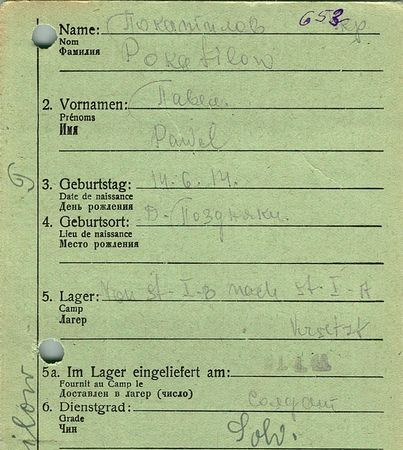 Name: Покатилов 653 кр
Nom
Фамилия Pokatilow
2. Vornamen: Павел.
Prénoms
Имя Pawel
3. Geburtstag: 14.6.14.
Date de naissance
День рождения
4. Geburtsort: Д. Поздняки.
Lieu de naissance
Место рождения
5. Lager: Von St-I-B nach St-I-A
Camp
Лагер versetzt
5a. Im Lager eingeliefert am:
Fournit au Camp le
Доставлен в лагер (число)
6. Dienstgrad: солдат
Grade
Чин Sold.
ilow